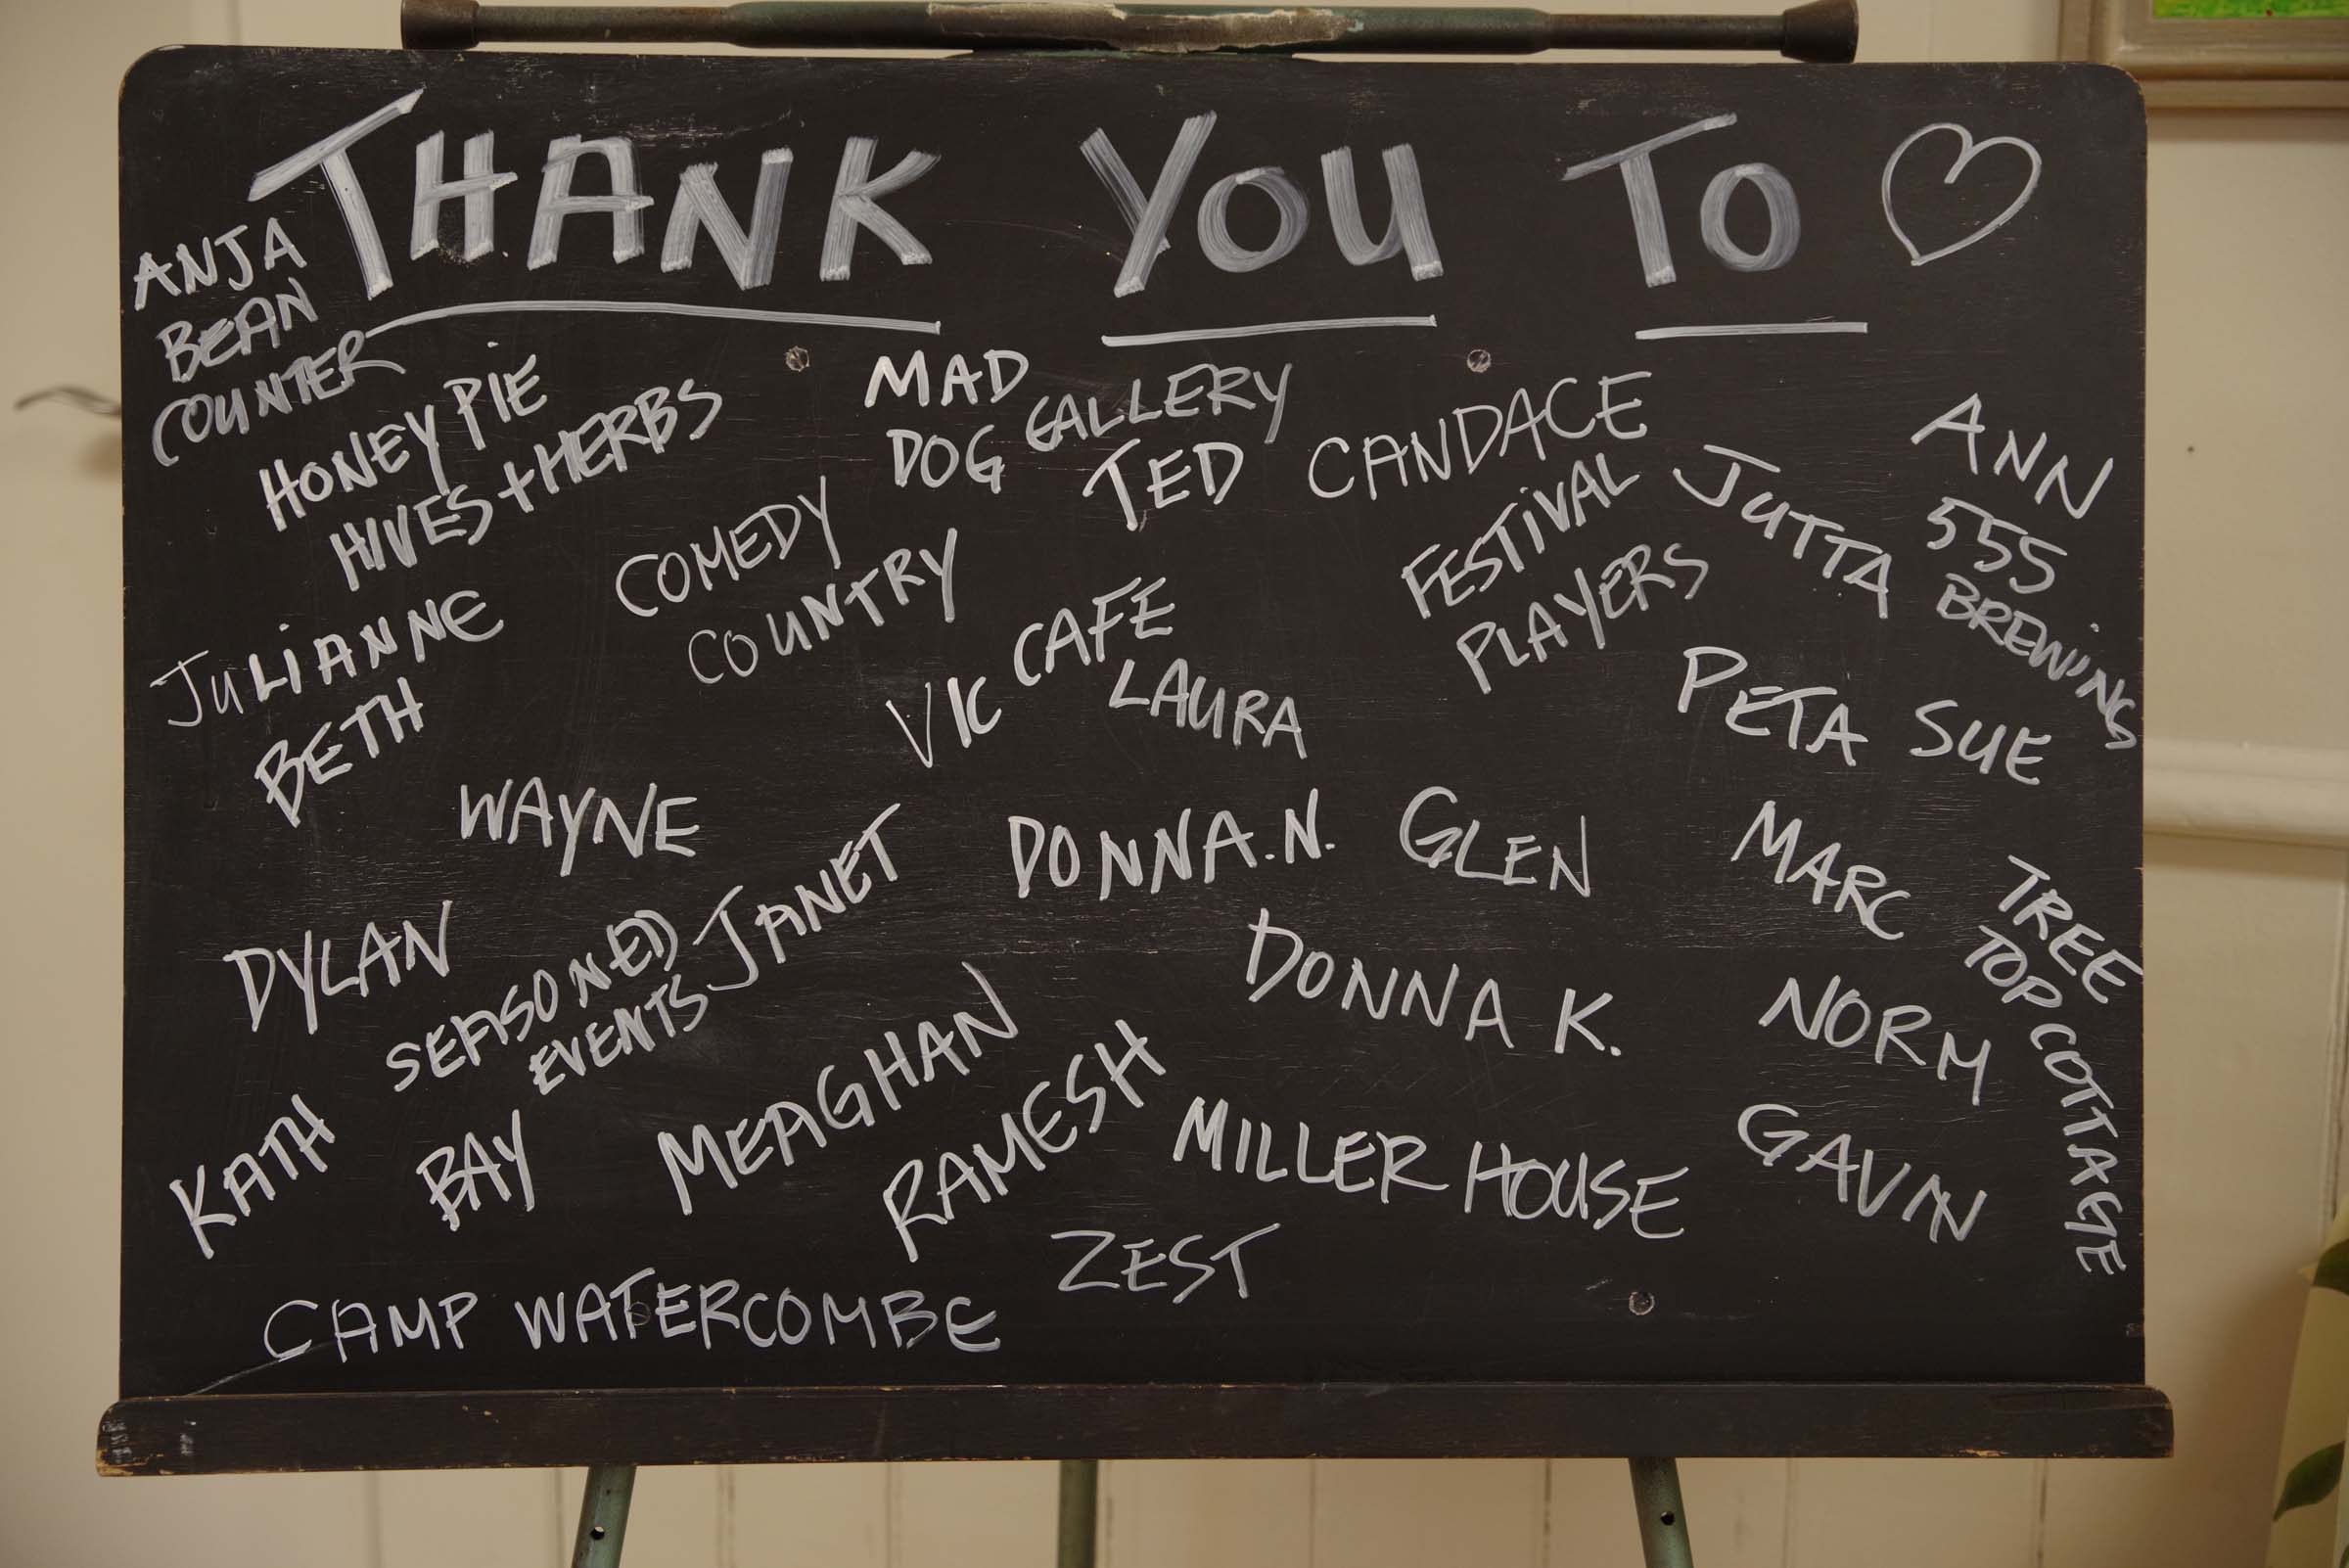 THANK YOU TO
ANJA
BEAN
COUNTER
HONEY PIE
HIVES + HERBS
MAD
DOG GALLERY
TED
CANDACE
ANN
COMEDY
COUNTRY
FESTIVAL
PLAYERS
JUTTA
555
BREWING
JULIANNE
BETH
VIC CAFE
LAURA
PETA
SUE
WAYNE
JANET
DONNA.N.
GLEN
MARC
TREE
TOP COTTAGE
DYLAN
SEASONED
EVENTS
DONNA K.
NORM
KATH
BAY
MEAGHAN
RAMESH
MILLER HOUSE
GAVIN
ZEST
CAMP WATERCOMBE